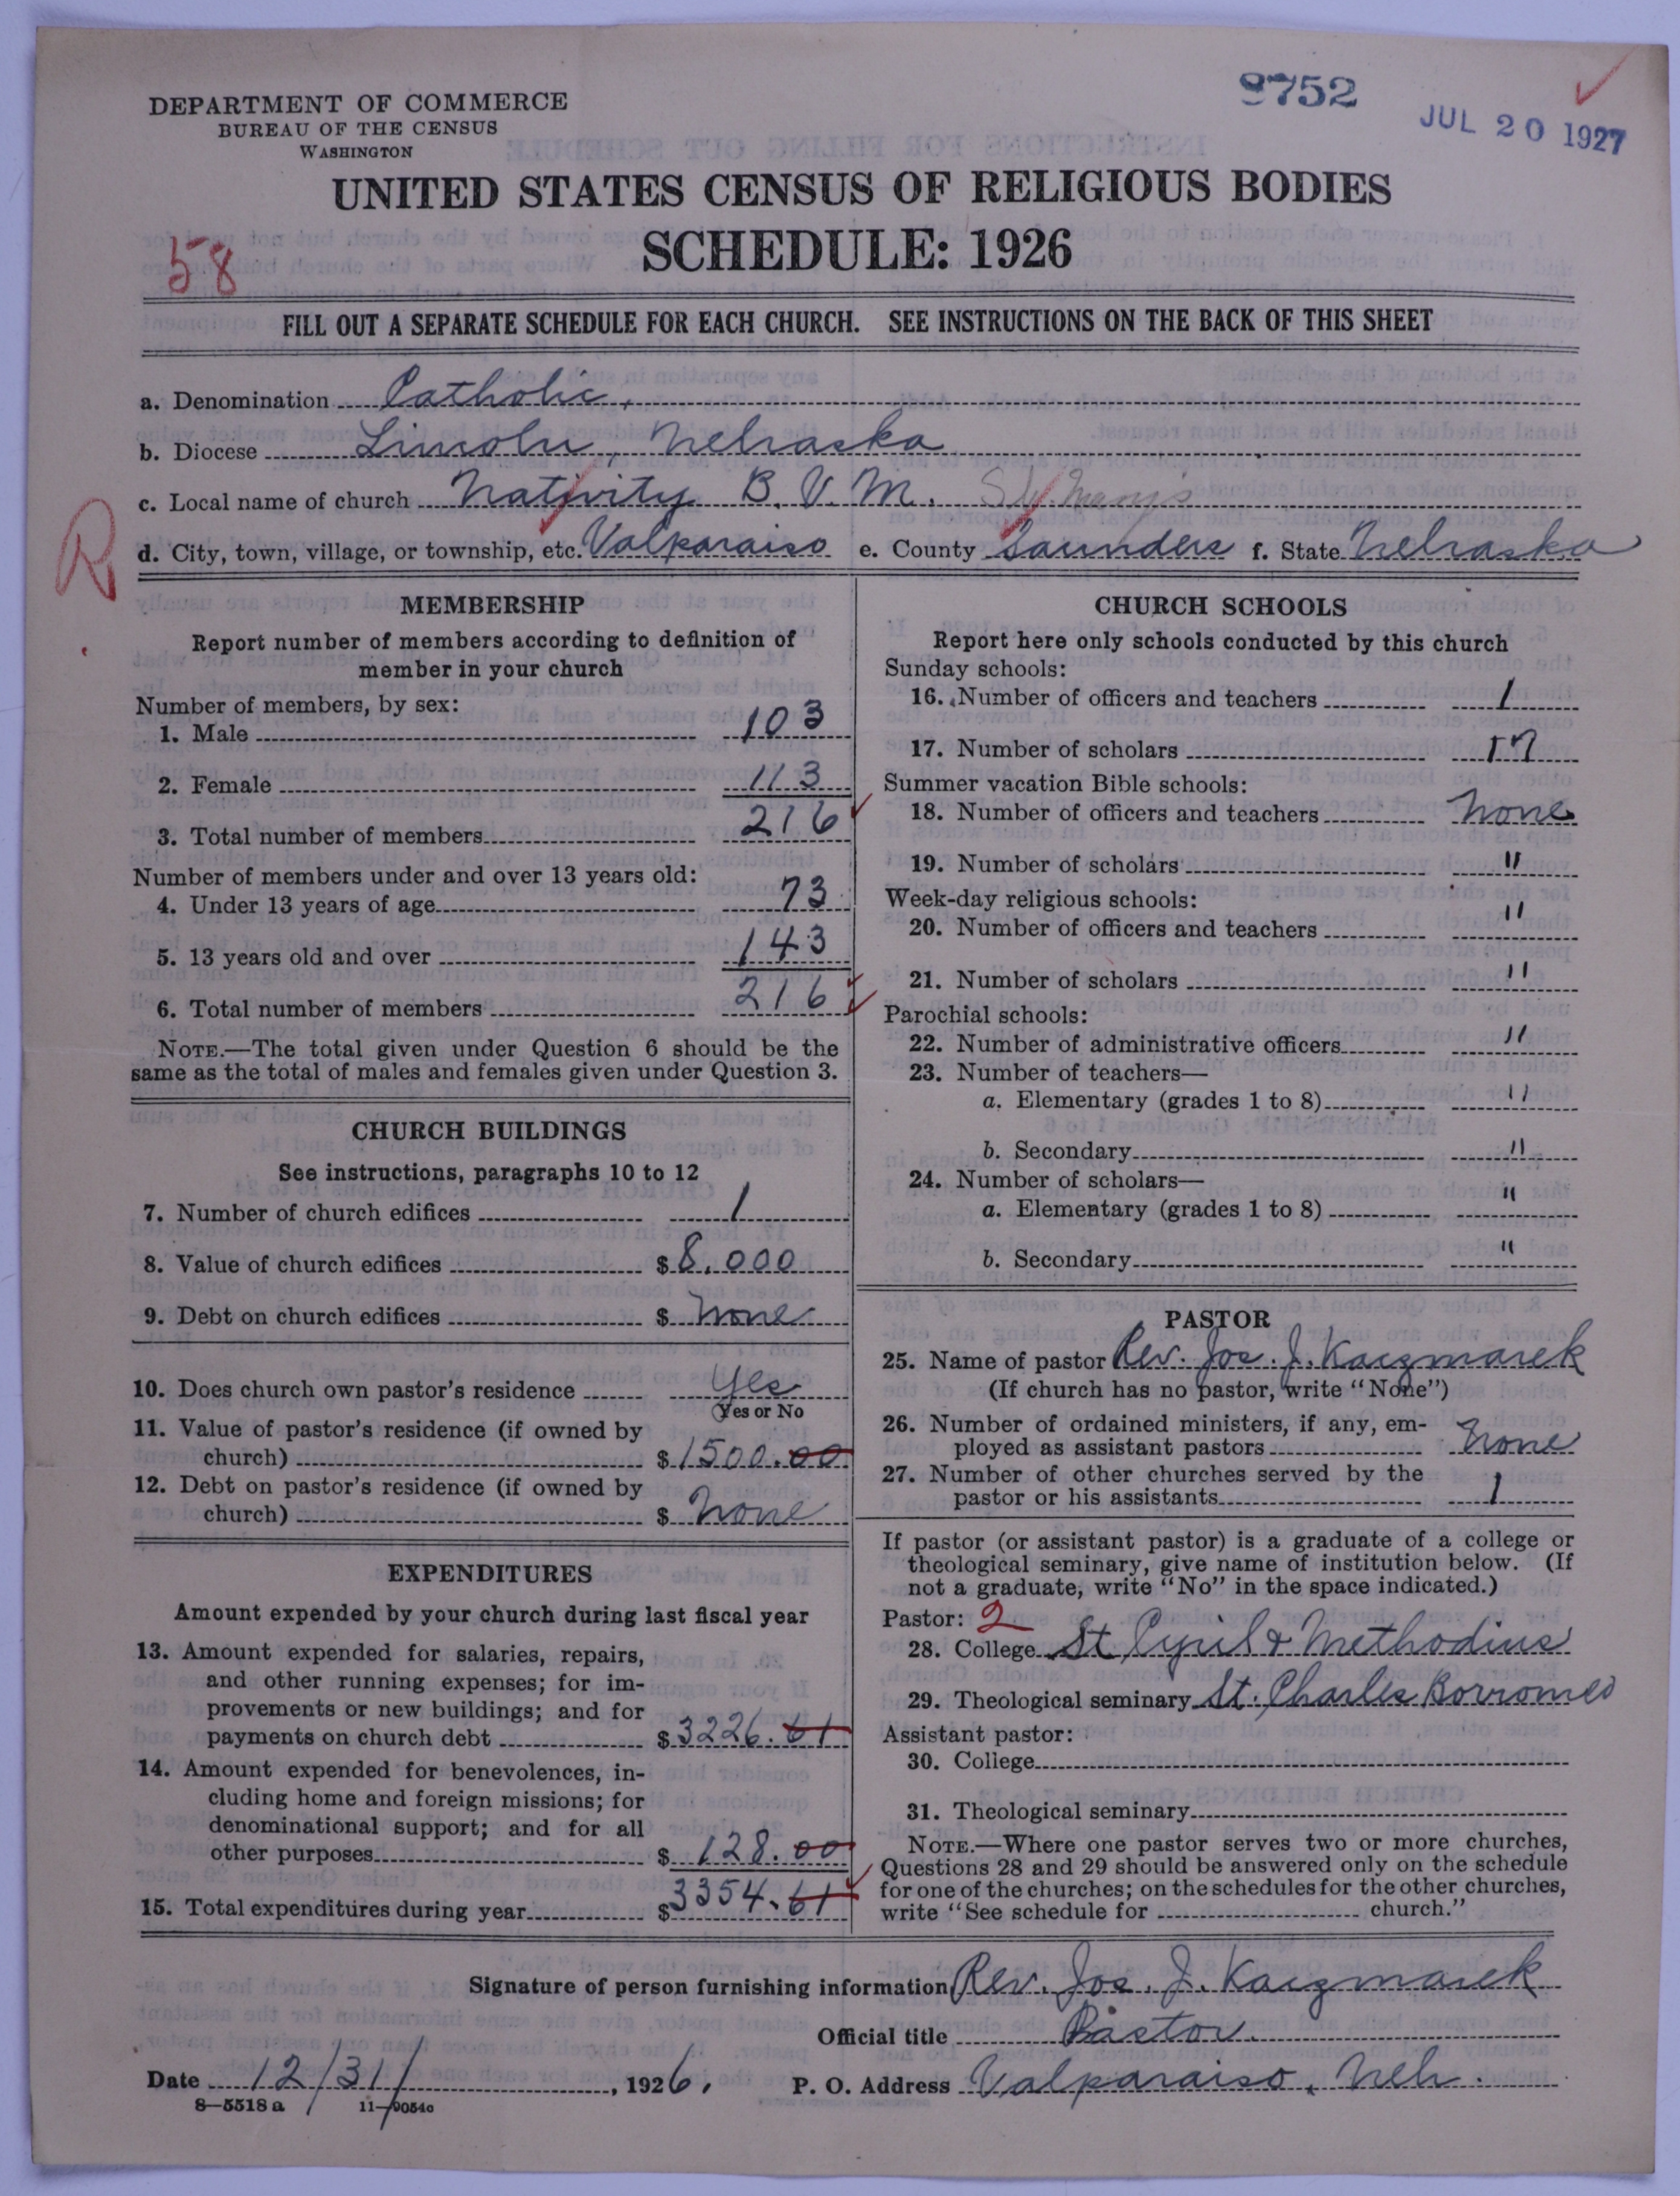 9752
JUL 20 1927
DEPARTMENT OF COMMERCE
BUREAU OF THE CENSUS
WASHINGTON
UNITED STATES CENSUS OF RELIGIOUS BODIES
SCHEDULE: 1926
58
FILL OUT A SEPARATE SCHEDULE FOR EACH CHURCH. SEE INSTRUCTIONS ON THE BACK OF THIS SHEET
a. Denomination Catholic,
b. Diocese Lincoln, Nebraska
c. Local name of church Nativity B. V. M. St. Mary's
R
d. City, town, village, or township, etc. Valparaiso e. County Saunders f. State Nebraska
MEMBERSHIP
Report number of members according to definition of
member in your church
Number of members, by sex:
1. Male 103
2. Female 113
3. Total number of members 216
Number of members under and over 13 years old:
4. Under 13 years of age 73
5. 13 years old and over 143
6. Total number of members 216
NOTE.—The total given under Question 6 should be the
same as the total of males and females given under Question 3.
CHURCH BUILDINGS
See instructions, paragraphs 10 to 12
7. Number of church edifices 1
8. Value of church edifices $ 8,000
9. Debt on church edifices $ None
10. Does church own pastor's residence Yes
Yes or No
11. Value of pastor's residence (if owned by
church) $ 1500.00
12. Debt on pastor's residence (if owned by
church) $ None
EXPENDITURES
Amount expended by your church during last fiscal year
13. Amount expended for salaries, repairs,
and other running expenses; for im-
provements or new buildings; and for
payments on church debt $ 3226.61
14. Amount expended for benevolences, in-
cluding home and foreign missions; for
denominational support; and for all
other purposes $ 128.00
15. Total expenditures during year $ 3354.61
CHURCH SCHOOLS
Report here only schools conducted by this church
Sunday schools:
16. Number of officers and teachers 1
17. Number of scholars 17
Summer vacation Bible schools:
18. Number of officers and teachers None
19. Number of scholars "
Week-day religious schools:
20. Number of officers and teachers "
21. Number of scholars "
Parochial schools:
22. Number of administrative officers "
23. Number of teachers—
a. Elementary (grades 1 to 8) "
b. Secondary "
24. Number of scholars—
a. Elementary (grades 1 to 8) "
b. Secondary "
PASTOR
25. Name of pastor Rev. Jos. J. Kaczmarek
(If church has no pastor, write "None")
26. Number of ordained ministers, if any, em-
ployed as assistant pastors None
27. Number of other churches served by the
pastor or his assistants 1
If pastor (or assistant pastor) is a graduate of a college or
theological seminary, give name of institution below. (If
not a graduate, write "No" in the space indicated.)
Pastor: 2
28. College St Cyril & Methodius
29. Theological seminary St. Charles Borromeo
Assistant pastor:
30. College
31. Theological seminary
NOTE.—Where one pastor serves two or more churches,
Questions 28 and 29 should be answered only on the schedule
for one of the churches; on the schedules for the other churches,
write "See schedule for church."
Signature of person furnishing information Rev. Jos. J. Kaczmarek
Official title Pastor.
Date 12/31/, 1926. P. O. Address Valparaiso, Neb.
8—5518 a 11—9054c